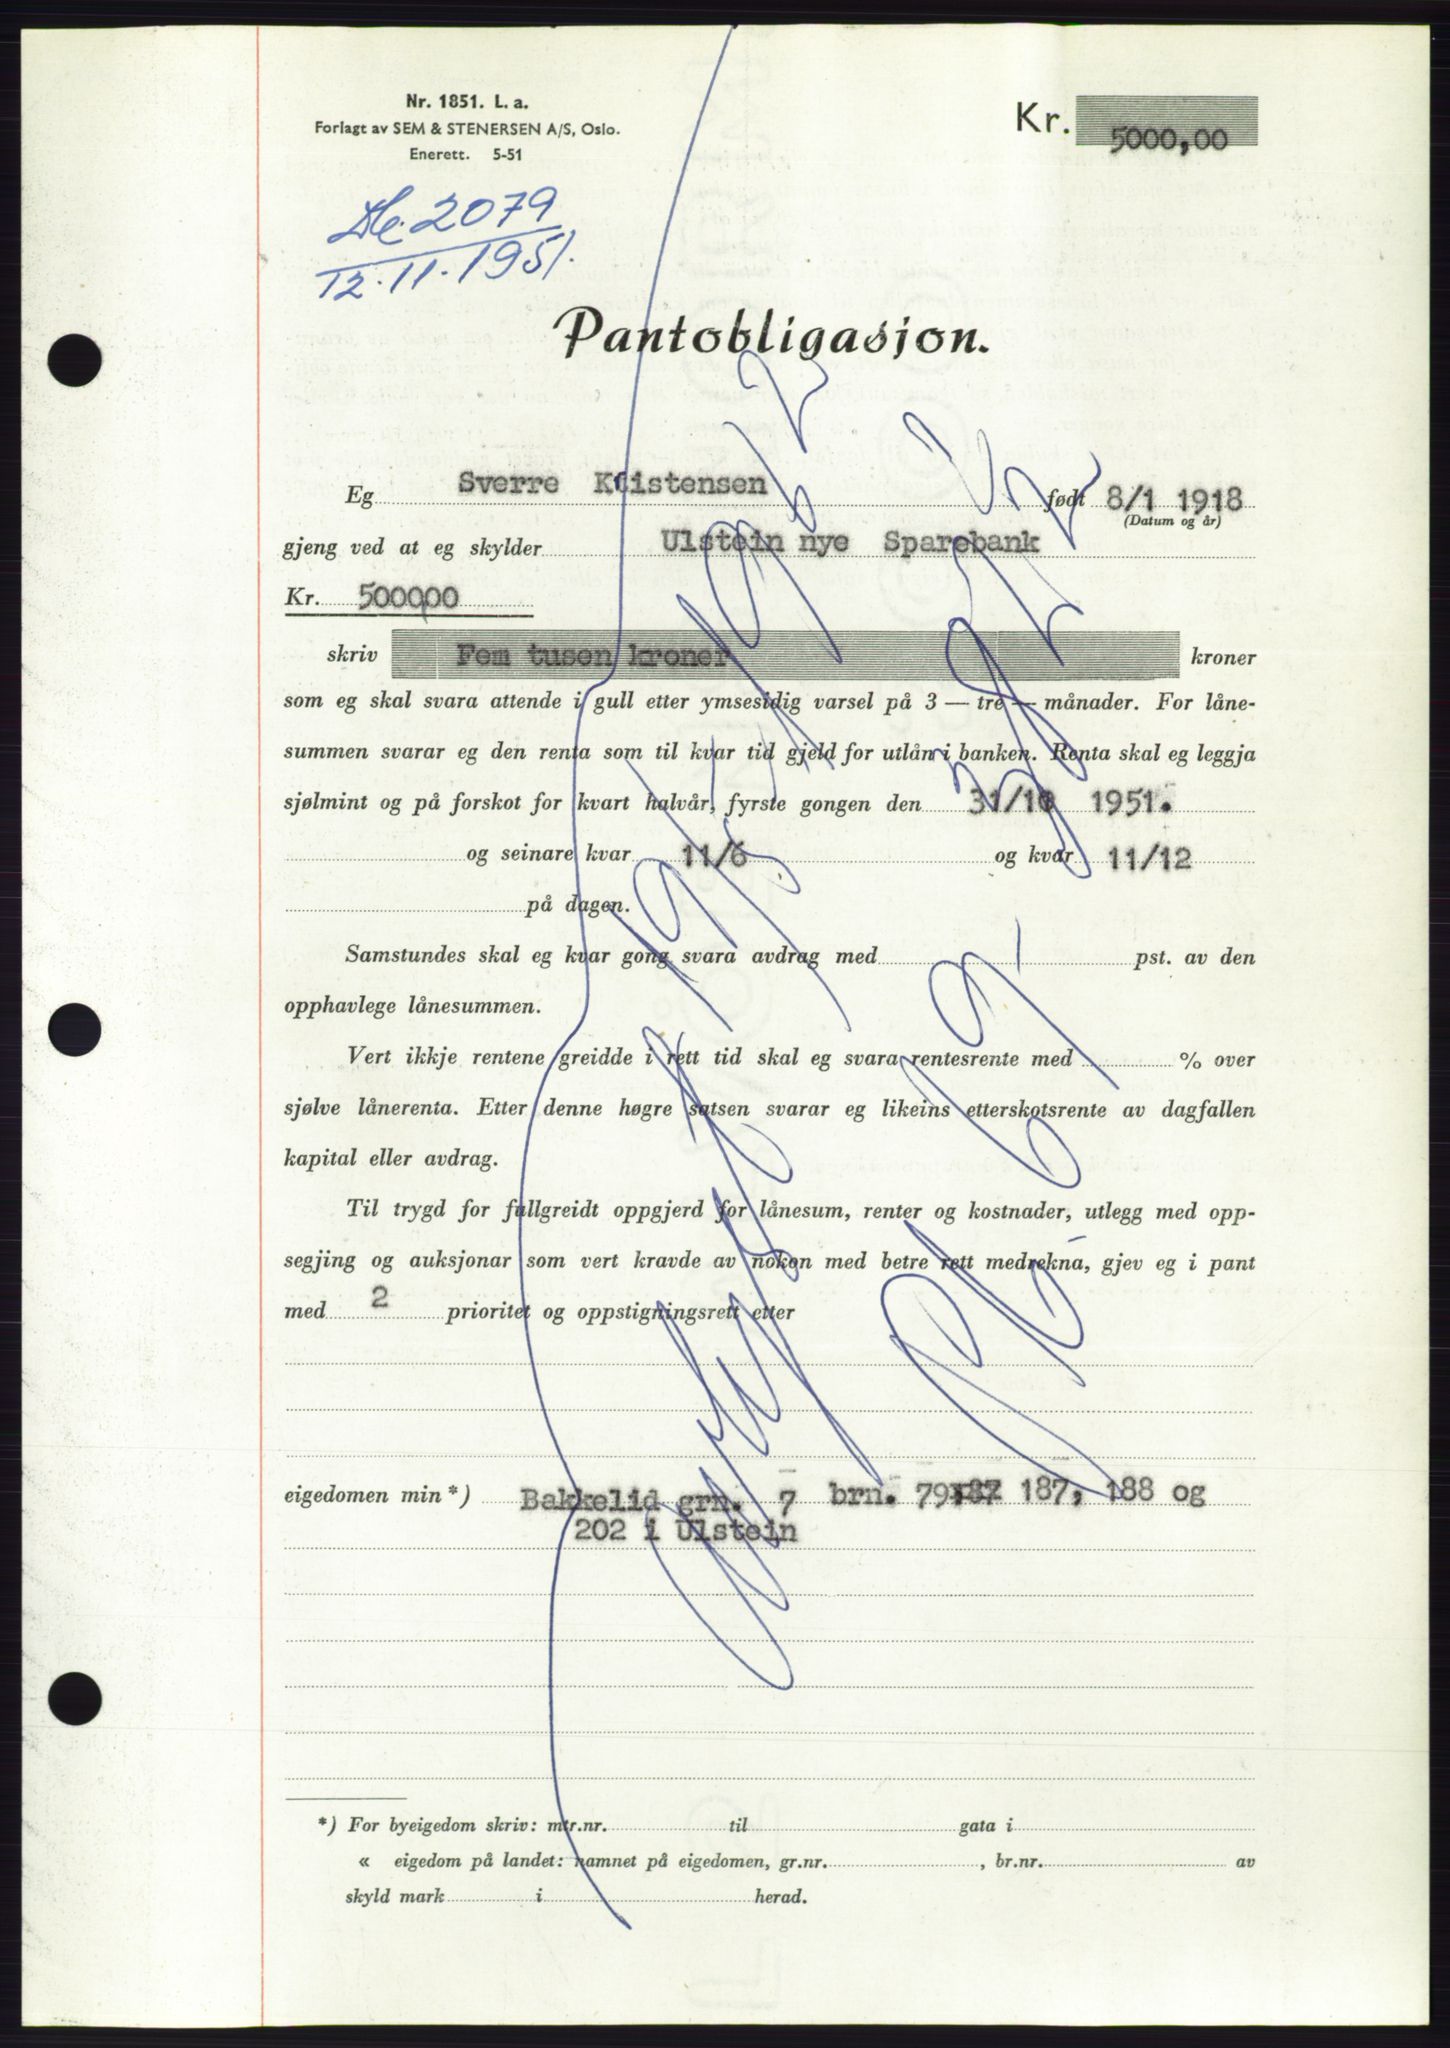 Nr. 1851. L. a.
Forlagt av SEM & STENERSEN A/S, Oslo.
Enerett. 5-51
Kr. 5000,00
2079
12.11.1951.
Pantobligasjon.
Eg Sverre Kristensen født 8/1 1918
(Datum og år)
gjeng ved at eg skylder Ulstein nye Sparebank
Kr. 500000
skriv Fem tusen kroner kroner
som eg skal svara attende i gull etter ymsesidig varsel på 3 — tre — månader. For låne-
summen svarar eg den renta som til kvar tid gjeld for utlån i banken. Renta skal eg leggja
sjølmint og på forskot for kvart halvår, fyrste gongen den 31/10 1951.
og seinare kvar 11/6 og kvar 11/12
på dagen.
Samstundes skal eg kvar gong svara avdrag med pst. av den
opphavlege lånesummen.
Vert ikkje rentene greidde i rett tid skal eg svara rentesrente med % over
sjølve lånerenta. Etter denne høgre satsen svarar eg likeins etterskotsrente av dagfallen
kapital eller avdrag.
Til trygd for fullgreidt oppgjerd for lånesum, renter og kostnader, utlegg med opp-
segjing og auksjonar som vert kravde av nokon med betre rett medrekna, gjev eg i pant
med 2 prioritet og oppstigningsrett etter
eigedomen min *) Bakkelid grn. 7 brn. 79, 187, 188 og
202 i Ulstein
*) For byeigedom skriv: mtr.nr. til gata i
« eigedom på landet: namnet på eigedomen, gr.nr. , br.nr. av
skyld mark i herad.